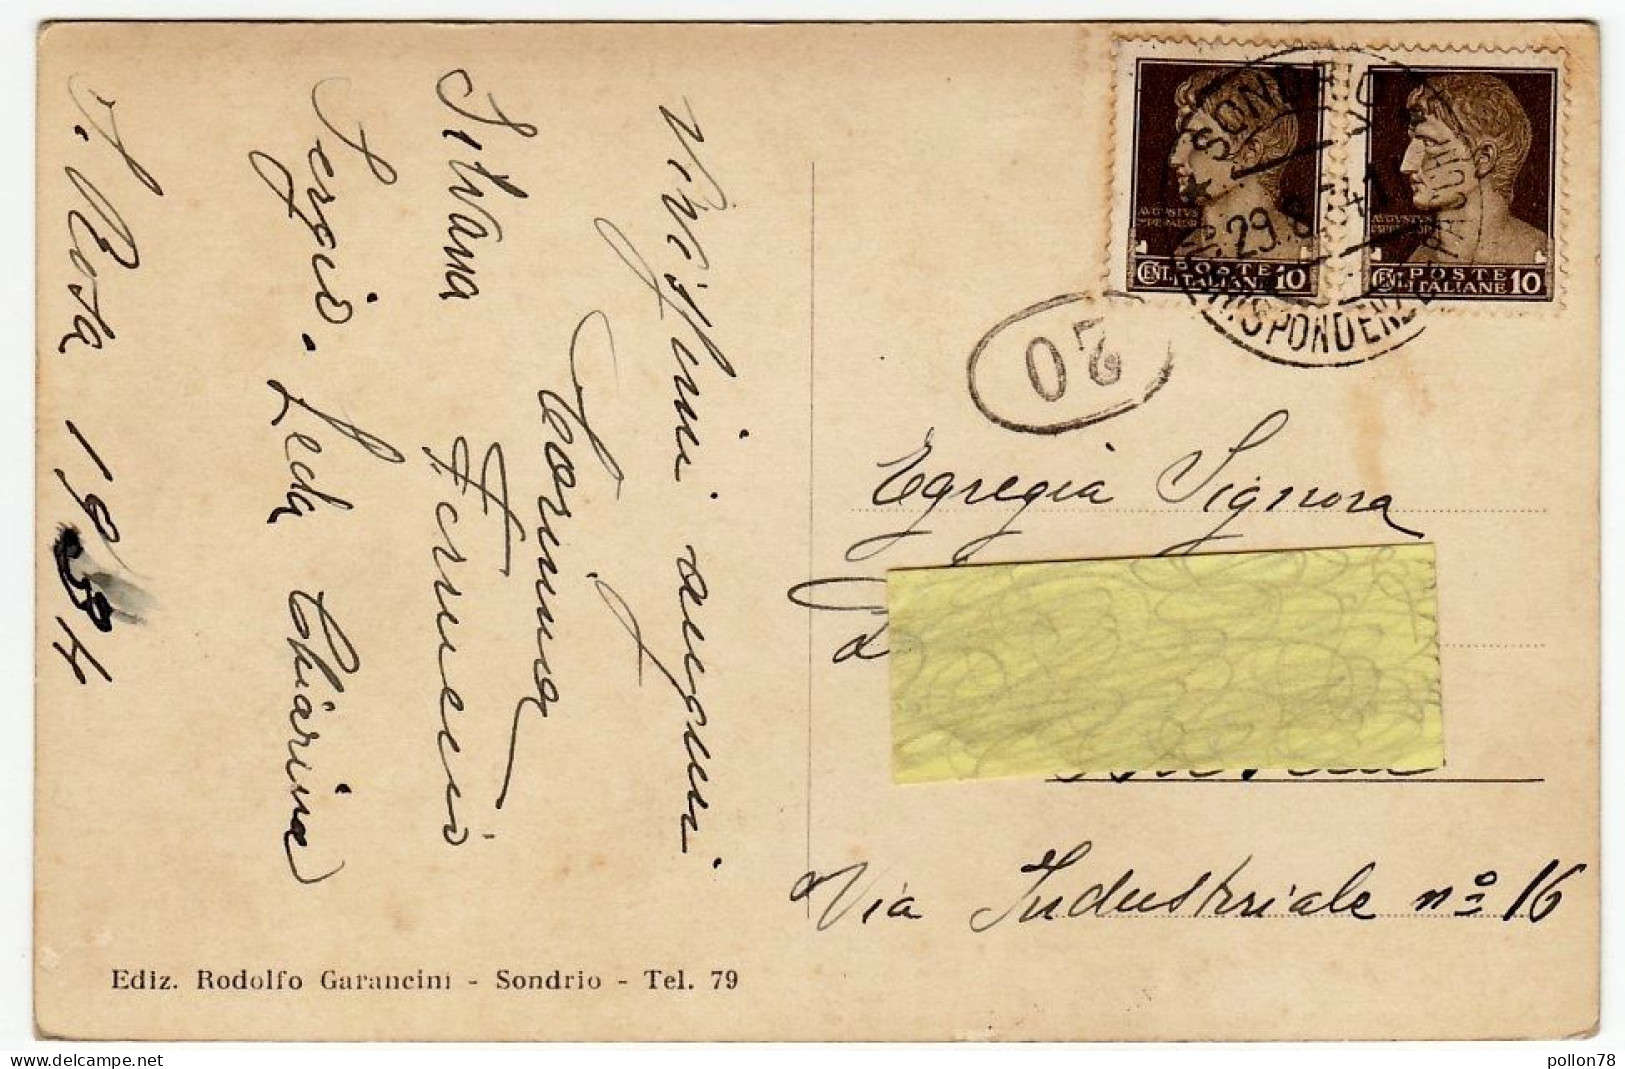 Vivissimi auguri
Corinna
Silvana Ferruccio
Sergio. Leda Chiarina
S. Rosa 1934
SONDRIO
29.8.41
CORRISPONDENZE PACCHI
AVGVSTVS
IMPERATOR
POSTE
CENT. ITALIANE 10
AVGVSTVS
IMPERATOR
POSTE
CENT. ITALIANE 10
20
Egregia Signora
Via Industriale nº 16
Ediz. Rodolfo Garancini - Sondrio - Tel. 79
pollon78